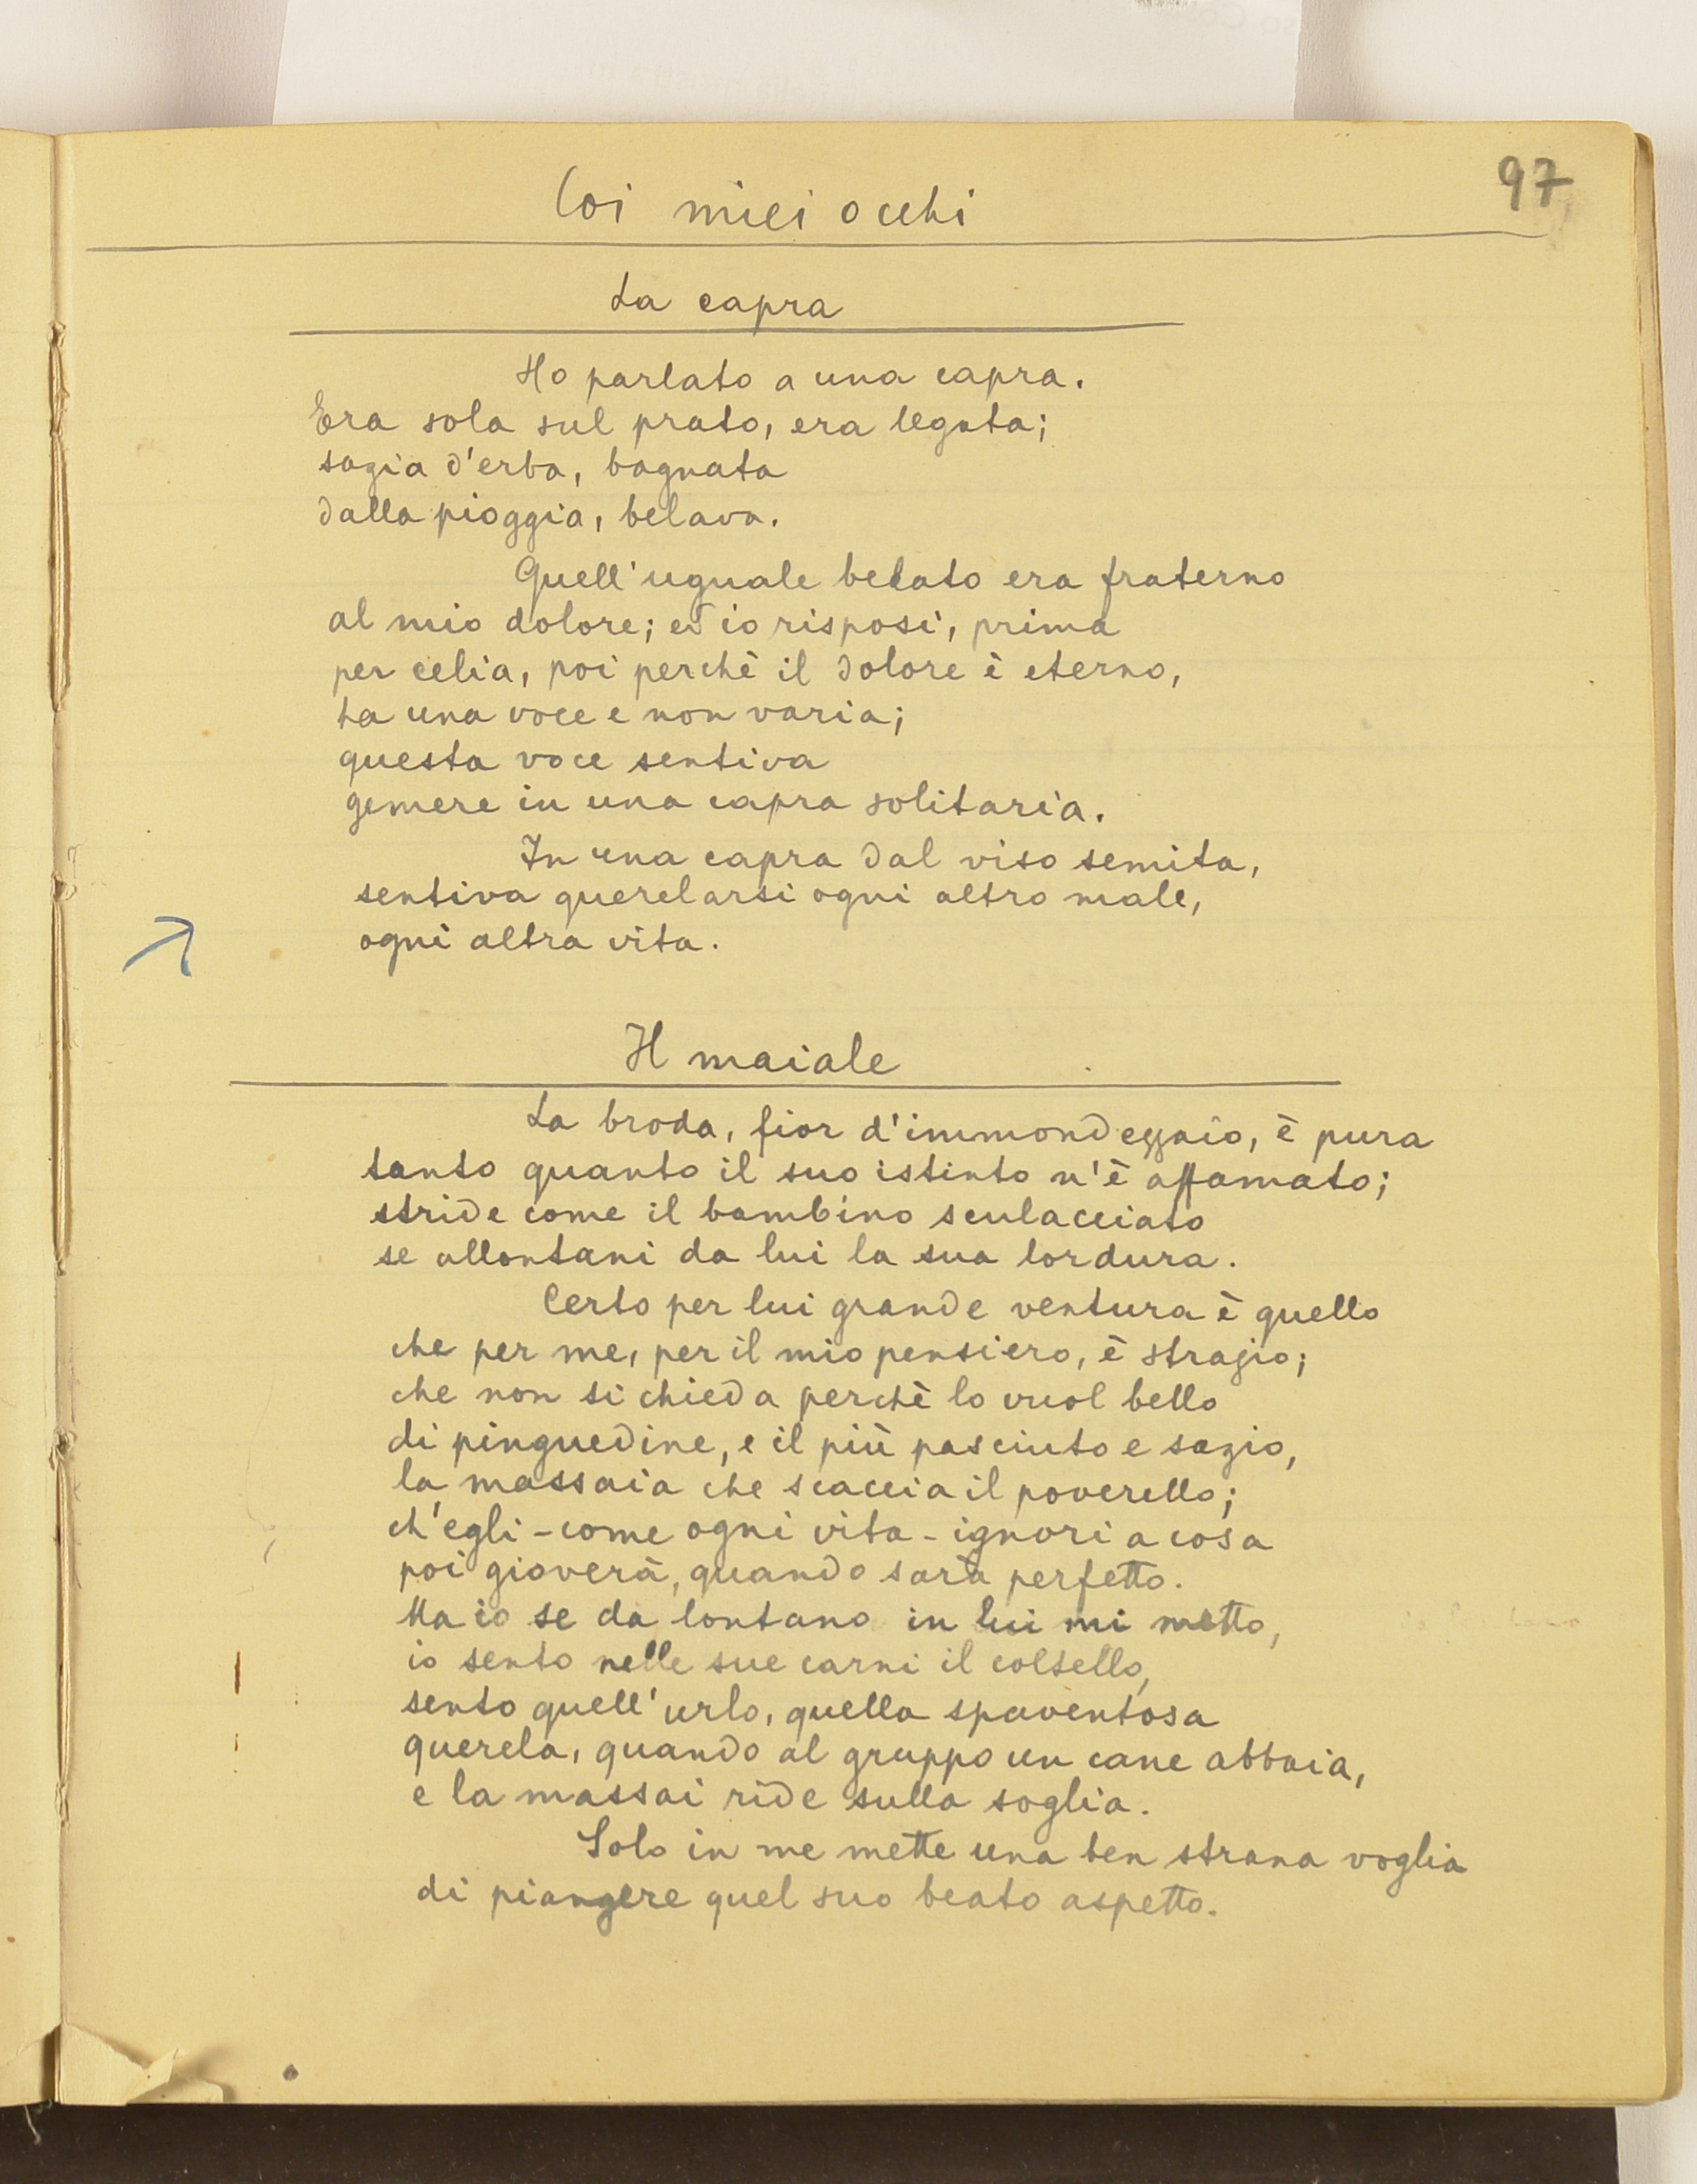 97
Coi miei occhi
La capra
Ho parlato a una capra.
Era sola sul prato, era legata;
sazia d'erba, bagnata
dalla pioggia, belava.
Quell'uguale belato era fraterno
al mio dolore; ed io risposi, prima
per celia, poi perchè il dolore è eterno,
ha una voce e non varia;
questa voce sentiva
gemere in una capra solitaria.
In una capra dal viso semita,
sentiva querelarsi ogni altro male,
ogni altra vita.
Il maiale
La broda, fior d'immondezzaio, è pura
tanto quanto il suo istinto n'è affamato;
stride come il bambino sculacciato
se allontani da lui la sua lordura.
Certo per lui grande ventura è quello
che per me, per il mio pensiero, è strazio;
che non si chieda perchè lo vuol bello
di pinguedine, e il più pasciuto e sazio,
la massaia che scaccia il poverello;
ch'egli - come ogni vita - ignori a cosa
poi gioverà, quando sarà perfetto.
Ma io se da lontano in lui mi metto,
io sento nelle sue carni il coltello,
sento quell'urlo, quella spaventosa
querela, quando al gruppo un cane abbaia,
e la massai ride sulla soglia.
Solo in me mette una ben strana voglia
di piangere quel suo beato aspetto.